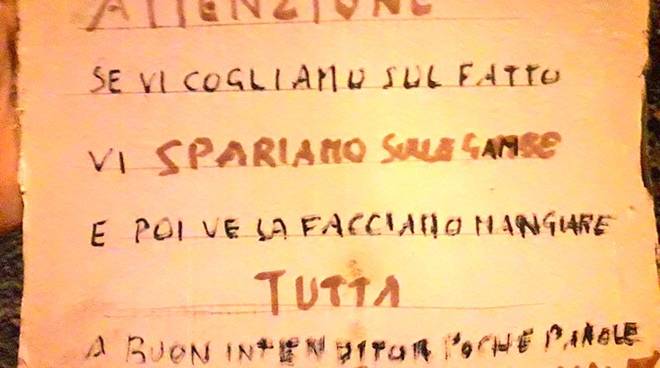 ATTENZIONE
SE VI COGLIAMO SUL FATTO
VI SPARIAMO SULLE GAMBE
E POI VE LA FACCIAMO MANGIARE
TUTTA
A BUON INTENDITOR POCHE PAROLE